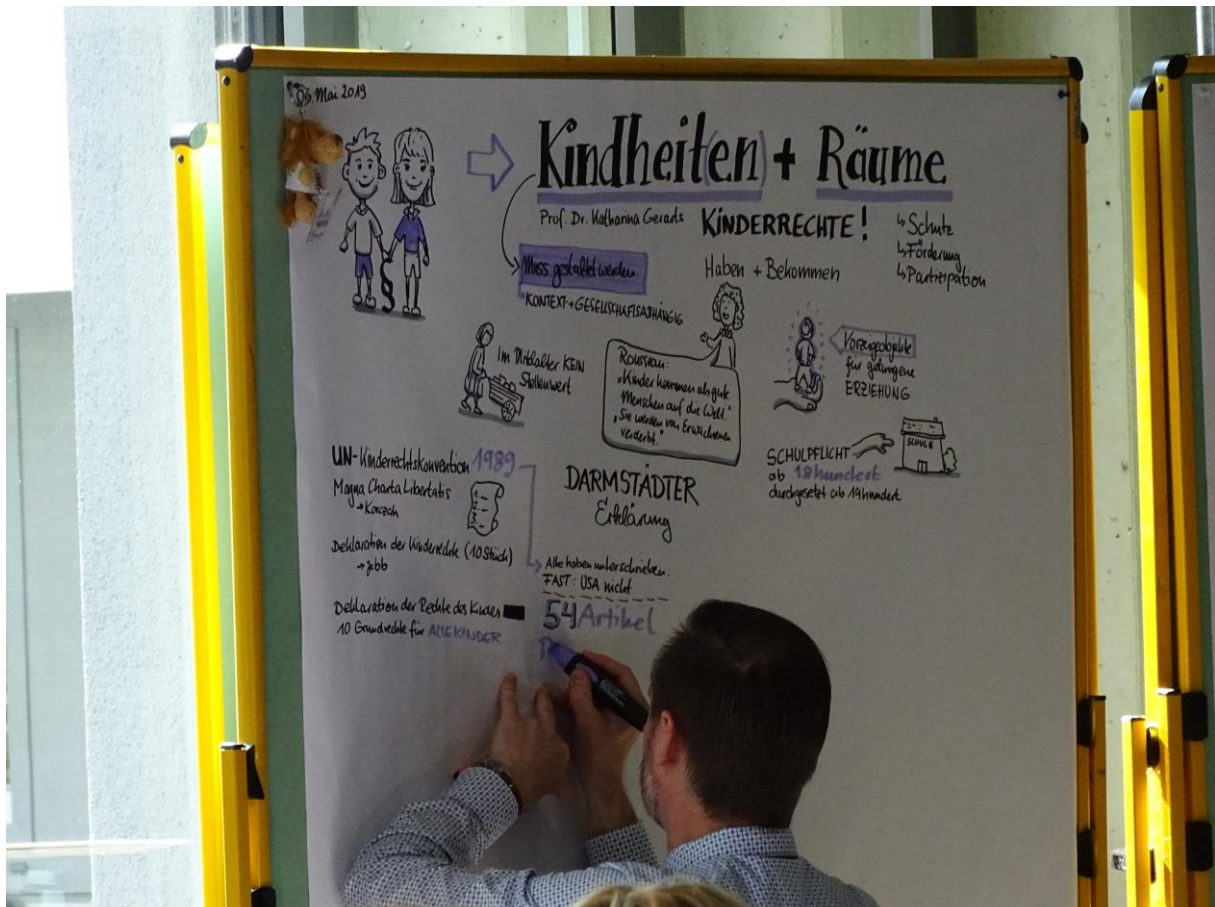 Mai 2019
Kindheit(en) + Räume
Prof. Dr. Katharina Gerarts
KINDERRECHTE!
↳ Schutz
↳ Förderung
↳ Partizipation
Muss gestaltet werden
KONTEXT + GESELLSCHAFTSABHÄNGIG
Haben + Bekommen
§
Im Mittelalter KEIN
Stellenwert
Rousseau:
„Kinder kommen als gute
Menschen auf die Welt."
„Sie werden von Erwachsenen
verderbt."
Vorzeigeobjekte
für gelungene
ERZIEHUNG
SCHULPFLICHT
ab 18hundert
durchgesetzt ab 19hundert
SCHULE
UN-Kinderrechtskonvention 1989
Magna Charta Libertatis
→ Korczak
Deklaration der Kinderrechte (10 Stück)
→ Jebb
Deklaration der Rechte des Kindes
10 Grundrechte für ALLE KINDER
DARMSTÄDTER
Erklärung
Alle haben unterschrieben.
FAST: USA nicht
54 Artikel